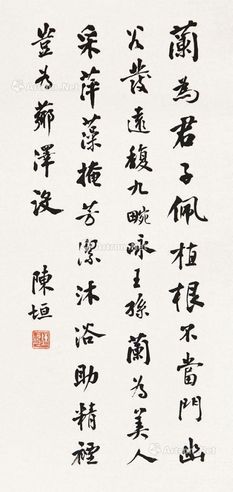 蘭為君子佩植根不當門幽
谷發遠馥九畹咏王孫蘭為美人
采萍藻掩芳潔沐浴助精禋
豈為薌澤設
陳垣